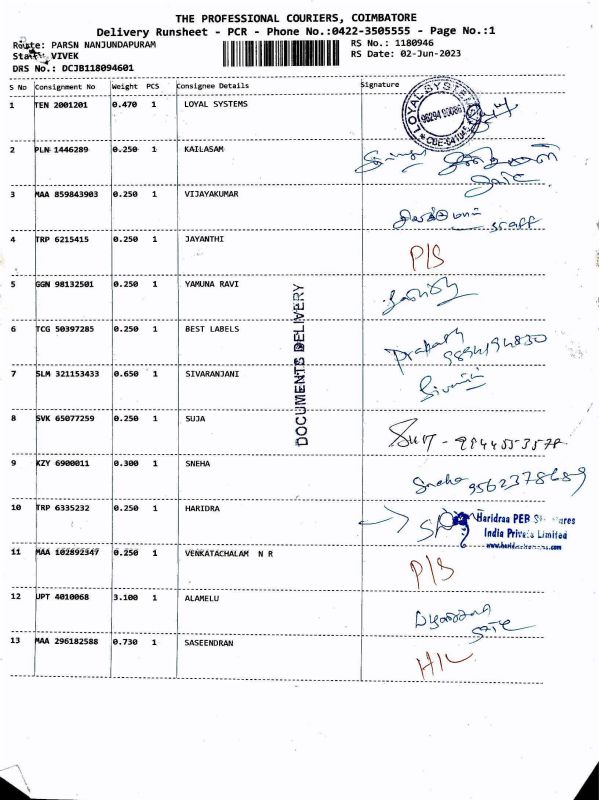 THE PROFESSIONAL COURIERS, COIMBATORE
Delivery Runsheet - PCR - Phone No.:0422-3505555 - Page No.:1
Route: PARSN NANJUNDAPURAM
RS No.: 1180946
Staff: VIVEK
RS Date: 02-Jun-2023
DRS No.: DCJB118094601
S No Consignment No Weight PCS Consignee Details Signature
1 TEN 2001201 0.470 1 LOYAL SYSTEMS
LOYAL SYSTEMS
2 PLN 1446289 0.250 1 KAILASAM
3 MAA 859843903 0.250 1 VIJAYAKUMAR
staff
4 TRP 6215415 0.250 1 JAYANTHI P/S
5 GGN 98132501 0.250 1 YAMUNA RAVI
6 TCG 50397285 0.250 1 BEST LABELS
DOCUMENTS DELIVERY
7 SLM 321153433 0.650 1 SIVARANJANI
8 SVK 65077259 0.250 1 SUJA
9 KZY 6900011 0.300 1 SNEHA Sneha 9562378689
10 TRP 6335232 0.250 1 HARIDRA
Haridraa PEB
India Private Limited
11 MAA 102892347 0.250 1 VENKATACHALAM N R P/S
12 UPT 4010068 3.100 1 ALAMELU
13 MAA 296182588 0.730 1 SASEENDRAN H/L